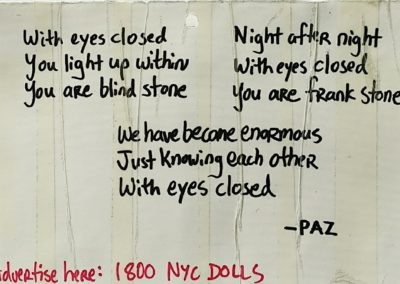 With eyes closed
You light up within
You are blind stone
Night after night
With eyes closed
You are frank stone
We have become enormous
Just knowing each other
With eyes closed
-PAZ
advertise here: 1800 NYC DOLLS